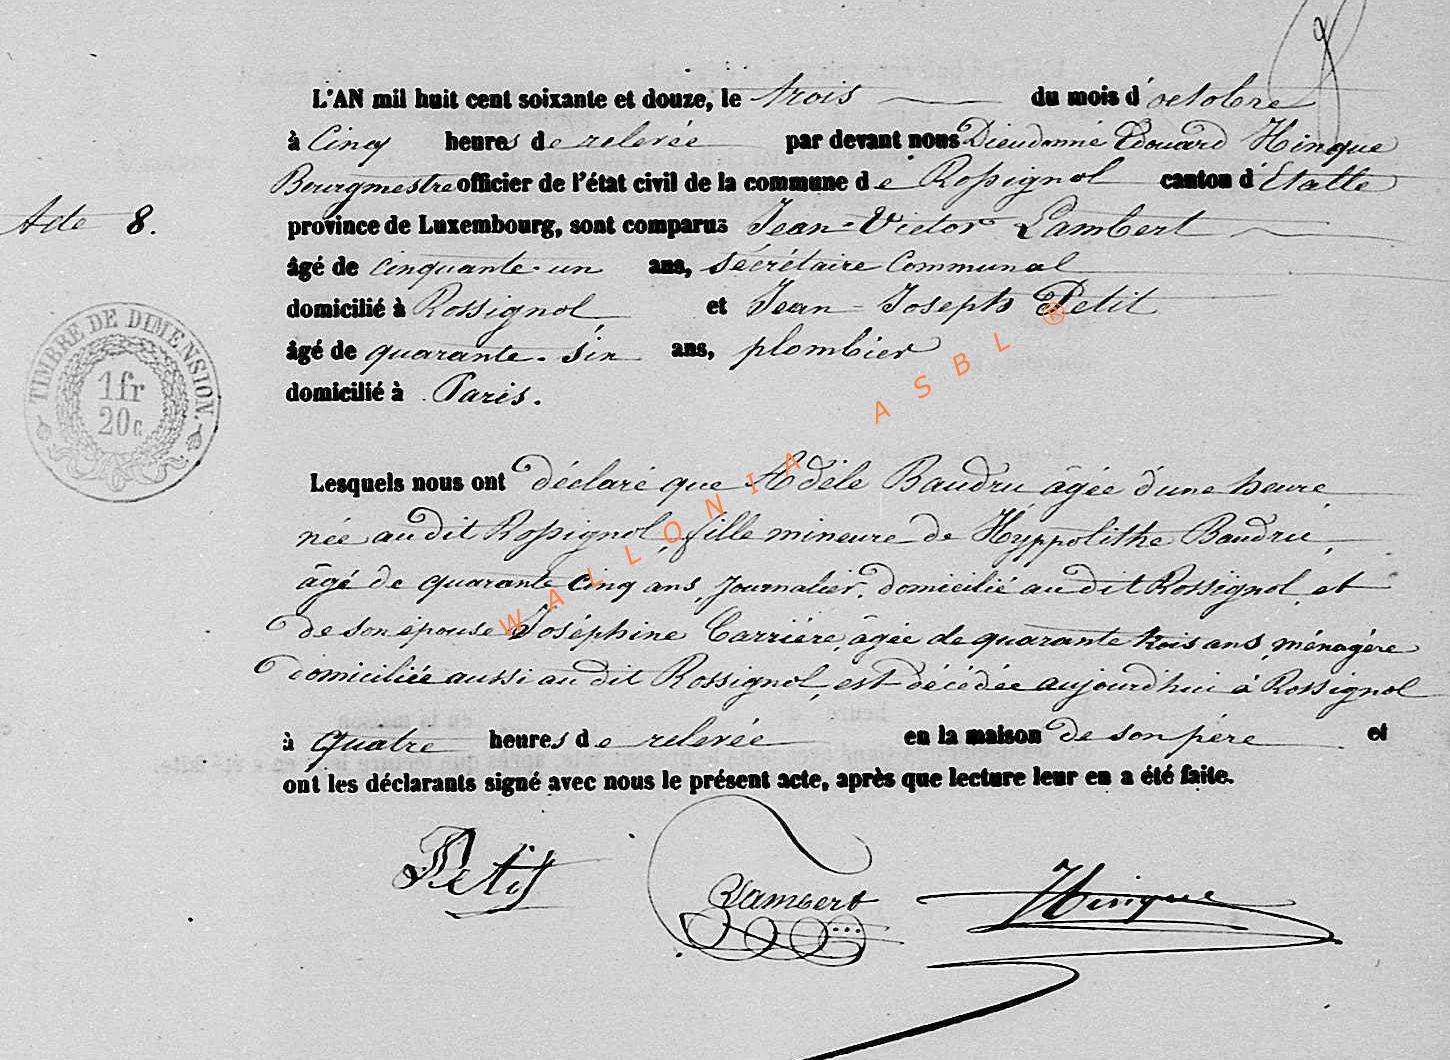 8
L'AN mil huit cent soixante et douze, le trois du mois d'octobre
à Cinq heures de relevée par devant nous Dieudonné Edouard Hinque
Bourgmestre officier de l'état civil de la commune de Rossignol canton d'Etalle
Acte 8. province de Luxembourg, sont comparus Jean-Victor Lambert
âgé de cinquante-un ans, sécrétaire Communal
domicilié à Rossignol, et Jean-Joseph Petit
âgé de quarante-six ans, plombier
domicilié à Paris.
TIMBRE DE DIMENSION.
1 fr
20 c
Lesquels nous ont déclaré que Adèle Baudru âgée d'une heure
née au dit Rossignol, fille mineure de Hyppolithe Baudru,
âgé de quarante cinq ans, journalier, domicilié au dit Rossignol, et
de son épouse Joséphine Carrière, âgée de quarante trois ans, ménagère
domiciliée aussi au dit Rossignol, est décédée aujourd'hui à Rossignol
à quatre heures de relevée en la maison de son père et
ont les déclarants signé avec nous le présent acte, après que lecture leur en a été faite.
Petit Lambert Hinque
WALLONIA ASBL ®